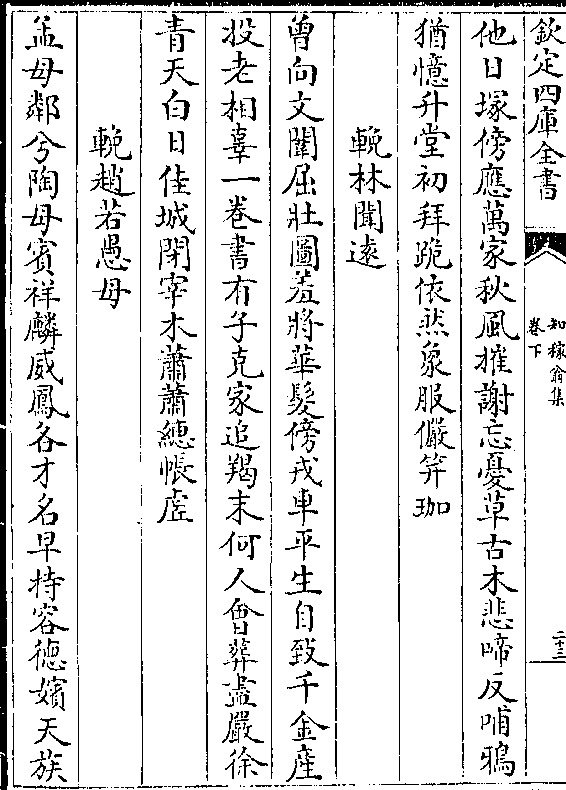 欽定四庫全書
知稼翁集
卷下
二十三
他日塚傍應萬家秋風摧謝忘憂草古木悲啼反哺鴉
猶憶升堂初拜跪依然象服儼笄珈
輓林聞遠
曾向文闈屈壯圖羞將華髮傍戎車平生自致千金產
投老相辜一卷書有子克家追羯末何人會葬盡嚴徐
青天白日佳城閉宰木蕭蕭繐帳虛
輓趙若愚母
孟母鄰兮陶母賓祥麟威鳳各才名早持容德嬪天族